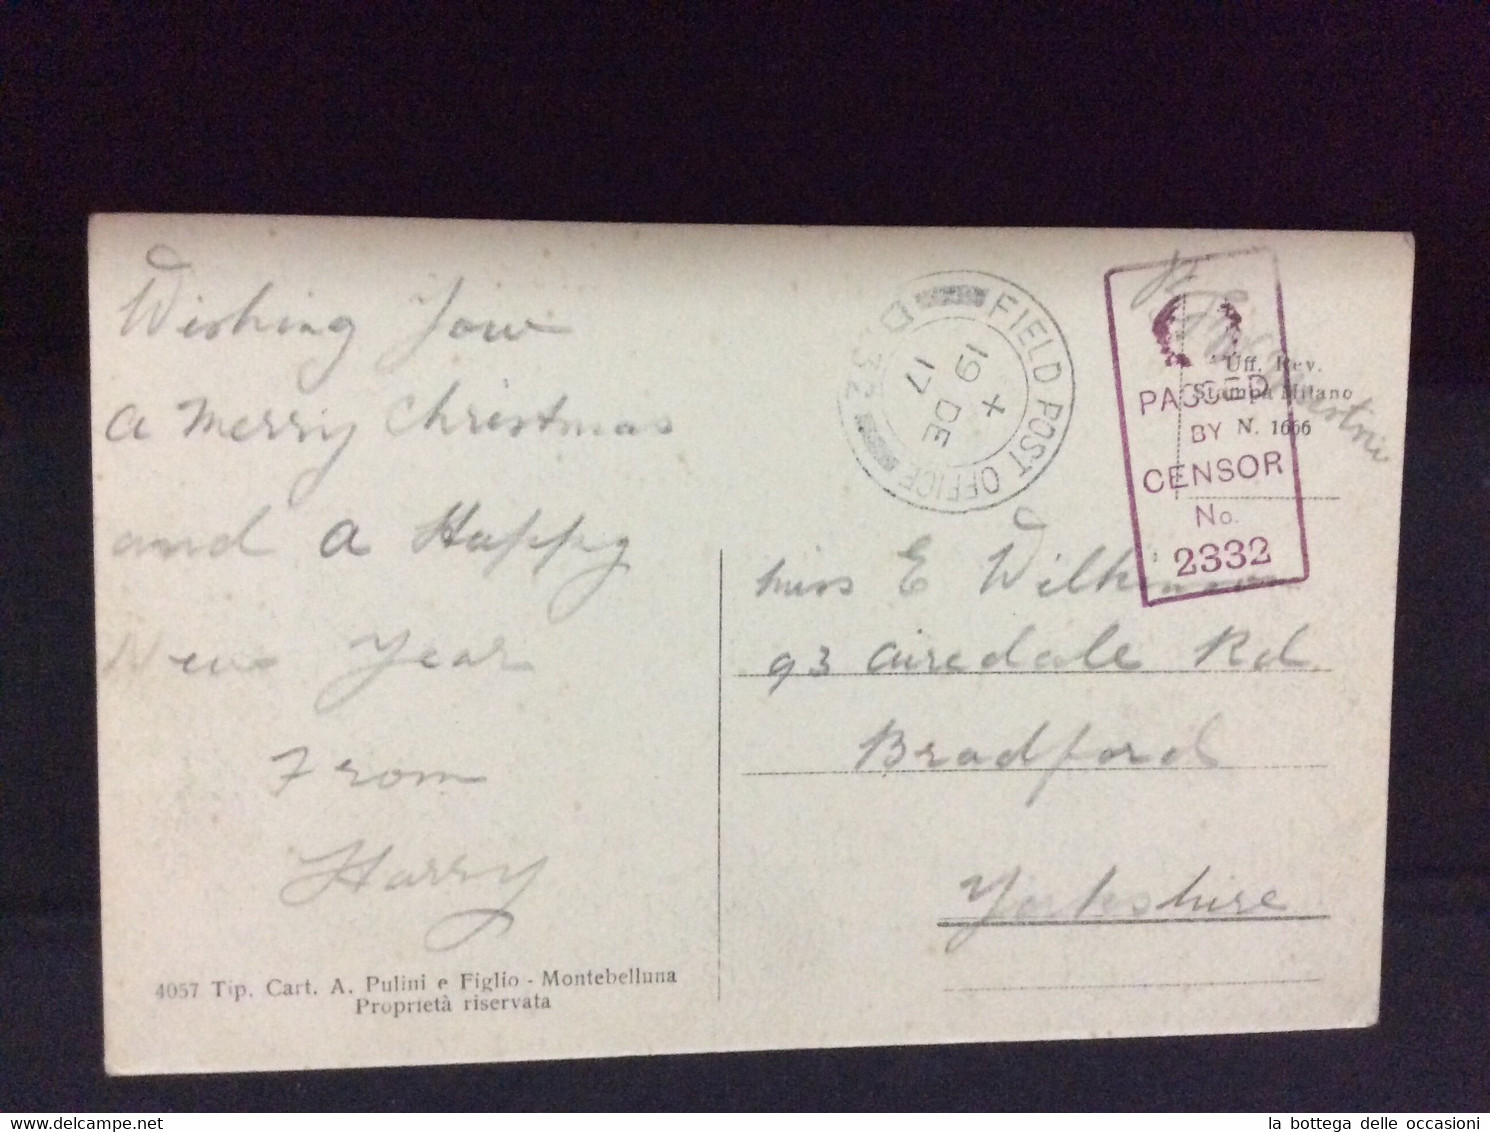 Wishing You
a Merry Christmas
and a Happy
New Year
From
Harry
4057 Tip. Cart. A. Pulini e Figlio - Montebelluna
Proprietà riservata
FIELD POST OFFICE
D 32
X
19 DE
17
Uff. Rev.
Stampa Milano
N. 1666
PASSED
BY
CENSOR
No.
2332
Miss E Wilkinson
93 Airedale Rd
Bradford
Yorkshire
la bottega delle occasioni